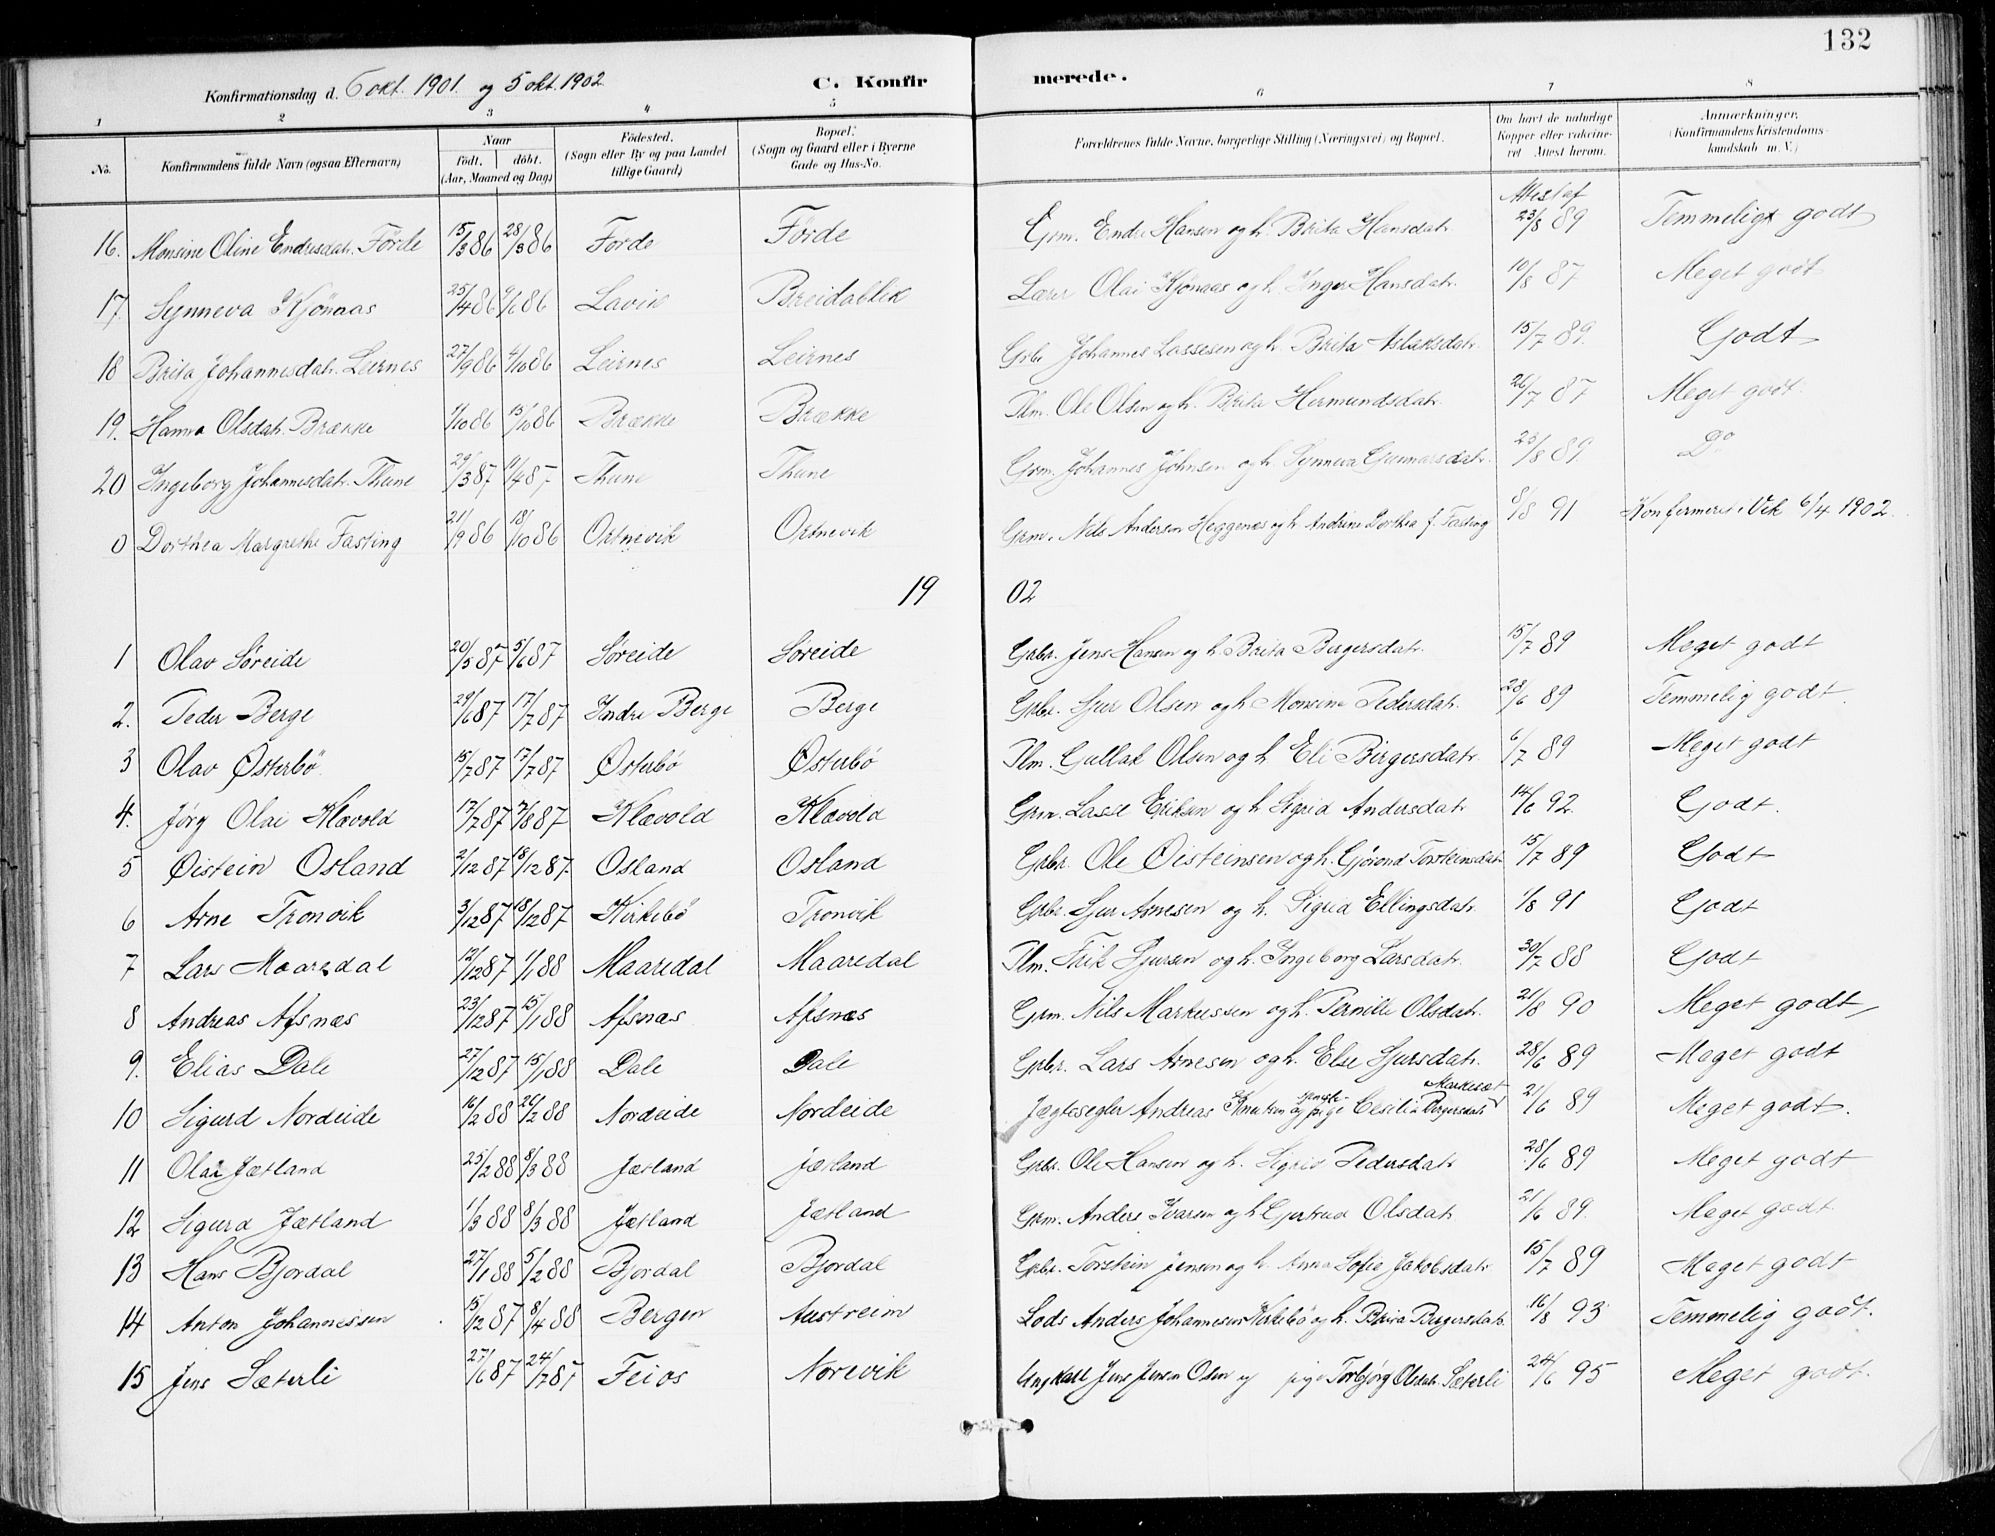 132
Konfirmationsdag d. 6 okt. 1901. og 5 okt. 1902.
C. Konfirmerede.
1 2 3 4 5 6 7 8
No. Konfirmandens fulde Navn (ogsaa Efternavn) Naar födt. döbt. (Aar, Maaned og Dag) Födested. (Sogn eller By og paa Landet tillige Gaard) Bopæl. (Sogn og Gaard eller i Byerne Gade og Hus-No. Forældrenes fulde Navne, borgerlige Stilling (Næringsvei) og Bopæl. Om havt de naturlige Kopper eller vaccineret. Attest herom. Anmærkninger. (Konfirmandens Kristendomskundskab m. V.)
16. Monsine Oline Endresdatr. Förde 15/3 86 28/3 86 Förde Förde Grm. Endre Hansen og h. Brita Hansdatr. Attest af 23/8 89 Temmelig godt
17. Synneva Kjönaas 25/4 86 /6 86 Lavik Breidablik Lærer Olai Kjönaas og h. Inger Hansdatr. 10/8 87 Meget godt
18 Brita Johannesdatr. Leirnes 27/9 86 4/10 86 Leirnes Leirnes Grbr. Johannes Lassesen og h. Brita Aslaksdatr. 15/7 89. Godt
19. Hanna Olsdatr. Brække 1/10 86 15/10 86 Brække Brække Plm. Ole Olsen og h. Brita Hermundsdatr. 26/7 87 Meget godt
20 Ingeborg Johannesdatr. Thune 29/3 87 11/4 87 Thune Thune Grm. Johannes Johnsen og h. Synneva Gunnarsdatr. 23/8 89. Do
0 Dorthea Margrethe Fasting 21/9 86 18/10 86 Ortnevik Ortnevik Grm. Nils Andersen Heggenes og h. Andrine Dorthea f. Fasting 8/8 91 Konfirmeret i Vik 6/4 1902.
1902
1 Olav Söreide 20/5 87 5/6 87 Söreide Söreide Grbr. Jens Hansen og h. Brita Bergersdatr. 15/7 89 Meget godt
2. Peder Berge 29/6 87 17/7 87 Indre Berge Berge Grbr. Sjur Olsen og h. Monsine Pedersdatr. 28/6 89 Temmelig godt.
3 Olav Østerbö 15/7 87 17/7 87 Østerbö Østerbö Plm. Gullak Olsen og h. Eli Birgersdatr. 6/7 89 Meget godt
4. Jörg Olai Klævold 17/7 87 7/8 87 Klævold Klævold Grm. Lasse Eriksen og h. Sigrid Andersdatr 14/6 92. Godt.
5 Øistein Osland 2/12 87 18/12 87. Osland Osland Grbr. Ole Øisteinsen og h. Gjörond Torsteinsdatr 15/7 89 Godt
6 Arne Tronvik 3/12 87 18/12 87 Kirkebö Tronvik Grbr. Sjur Arnesen og h. Sigrid Ellingsdatr. 1/8 91 Godt
7 Lars Maaredal 12/12 87 1/1 88 Maaredal Maaredal Plm. Erik Sjursen og h. Ingeborg Larsdatr. 30/7 88 Godt
8 Andreas Afsnæs 23/12 87 15/1 88 Afsnæs Afsnæs Grm. Nils Markussen og h. Pernille Olsdatr. 21/8 90 Meget godt
9. Elias Dale 27/12 87 15/1 88 Dale Dale Grbr. Lars Arnesen og h. Else Sjursdatr. 28/6 89 Meget godt
10 Sigurd Nordeide 16/2 88 26/2 88 Nordeide Nordeide Jægtesegler Andreas Knutsen og pige Cesilia Bergersdatr 21/6 89 Meget godt.
11 Olai Jætland 25/2 88 8/3 88 Jætland Jætland Grbr. Ole Hansen og h. Sigrid Pedersdatr 28/6 89 Meget godt
12 Sigurd Jætland 1/3 88 8/3 88 Jætland Jætland Grm. Anders Ivarsen og h. Gjertrud Olsdatr. 21/6 89. Meget godt
13 Hans Bjordal 27/1 88 5/2 88 Bjordal Bjordal Grbr. Torstein Jensen og h. Anna Sofie Jakobsdatr 15/7 89 Meget godt
14 Anton Johannessen 15/12 87 8/4 88 Bergen Austreim Lods Anders Johannesen Kirkebö og h. Brita Bergersdatr. 16/8 93 Temmelig godt.
15 Jens Sæterli 27/6 87 24/7 87 Feios Norevik Ungkall Jens Jensen Olsen og pige Torbjörg Olsdatr. Sæterli 24/6 95 Meget godt.